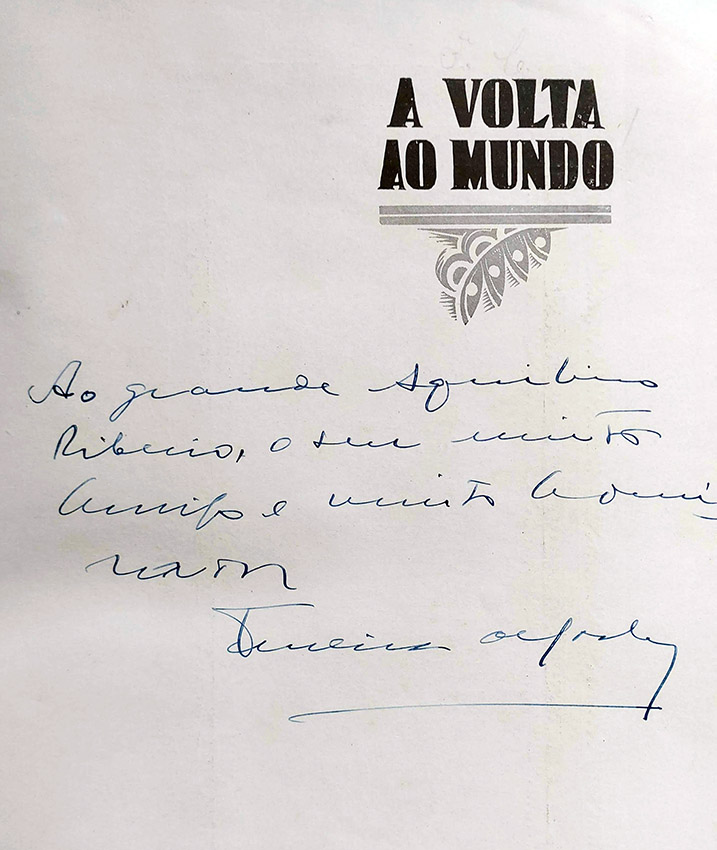 A VOLTA
AO MUNDO
Ao grande Aquilino
Ribeiro, o seu muito
Amigo e muito Admi
rador
Ferreira de Castro